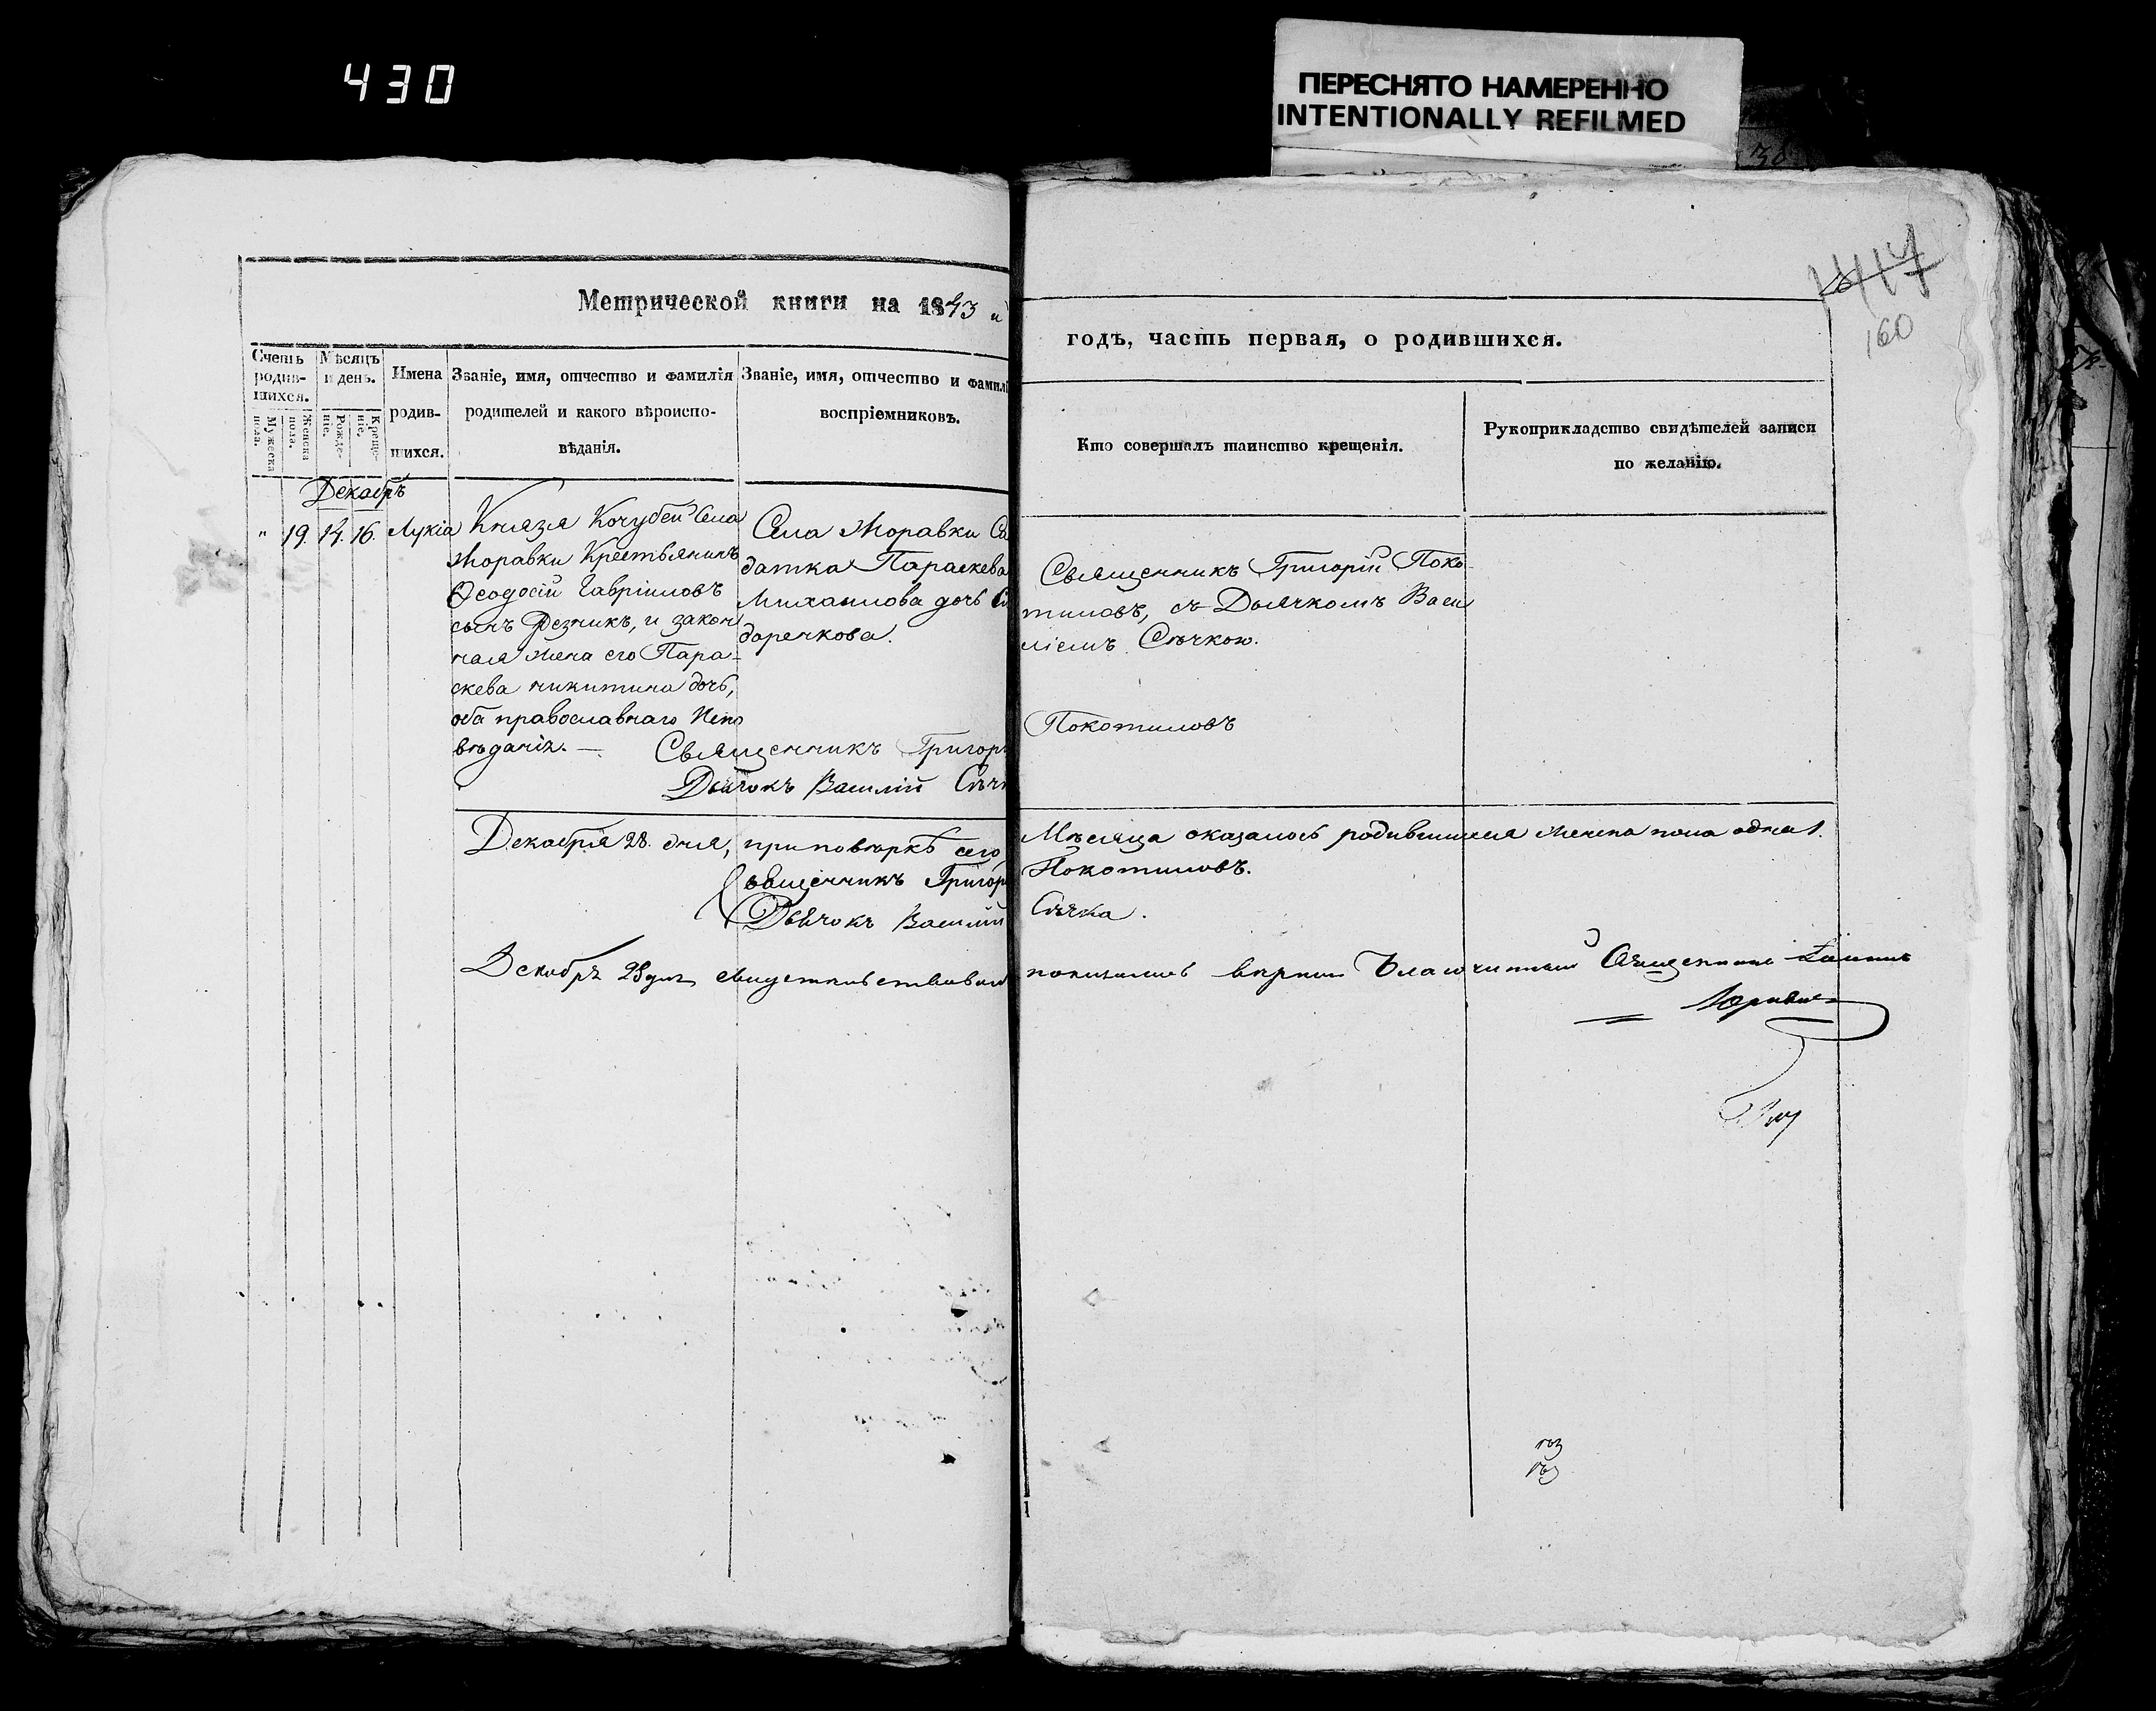 430
ПЕРЕСНЯТО НАМЕРЕННО
INTENTIONALLY REFILMED
160
Метрической книги на 1843 й
годъ, часть первая, о родившихся.
Счетъ родив-шихся.
Мужеска пола.
Женска пола.
Мѣсяцъ и день.
Рожде-ніе.
Креще-ніе.
Имена родив-шихся.
Званіе, имя, отчество и фамилія
родителей и какого вѣроиспо-
вѣданія.
Званіе, имя, отчество и фамилі
воспріемниковъ.
Кто совершалъ таинство крещенія.
Рукоприкладство свидѣтелей записи
по желанію.
Декабръ
" 19. 14. 16. Лукіа
Князя Кочубея Села
Жоравки Крестьянинъ
Ѳеодосій Гавріиловъ
сынъ Резникъ, и закон
ная жена его Пара-
скева никитина дочь,
оба православнаго Испо
вѣданія. —
Села Жоравки Сол
датка Параскева
Михаилова дочь
Священникъ Григорій Поко-
тиловъ, съ Дьячкомъ Васи
ліемъ Сѣчкою.
Священникъ Григор Покотиловъ
Дьячокъ Василій Сѣчк
Декабря 28. дня, при повѣркѣ сего Мѣсяца оказалось родившихся женска пола одна 1.
Священникъ Григор Покотиловъ.
Дьячокъ Василій Сѣчка.
Декабря 28 дня свидетельствовал Благочинный Священникъ